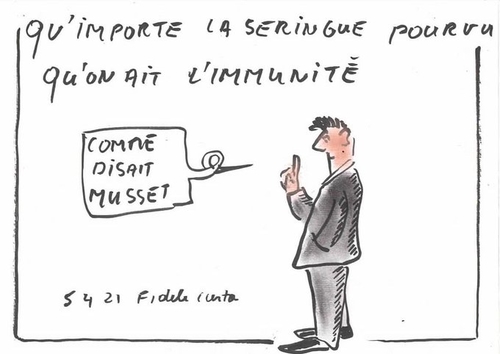 QU'IMPORTE LA SERINGUE POURVU
QU'ON AIT L'IMMUNITÉ
COMME
DISAIT
MUSSET
5 4 21 Fidele